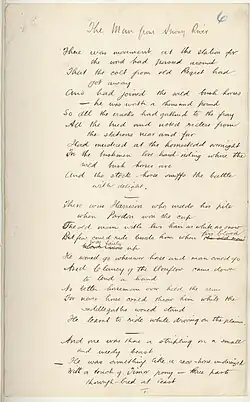 6
The Man from Snowy River
There was movement at the station for
the word had passed around
That the colt from old Regret had
got away
And had joined the wild bush horses
- he was worth a thousand pound
So all the cracks had gathered to the fray
All the tried and noted riders from
the stations near and far
Had mustered at the homestead overnight
For the bushmen love hard riding where the
wild bush horses are
And the stock-horse snuffs the battle
with delight.
There was Harrison who made his pile
when Pardon won the cup
The old man with his hair as white as snow
But few could ride beside him when
his blood
was fairly up
He would go wherever horse and man could go
And Clancy of the Overflow came down
to lend a hand
No better horseman ever held the reins
For never horse could throw him while the
saddlegirths would stand
He learnt to ride while droving on the plains
And one was there a stripling on a small
and weedy beast
He was something like a racehorse undersized
With a touch of Timor pony - three parts
thorough-bred at least